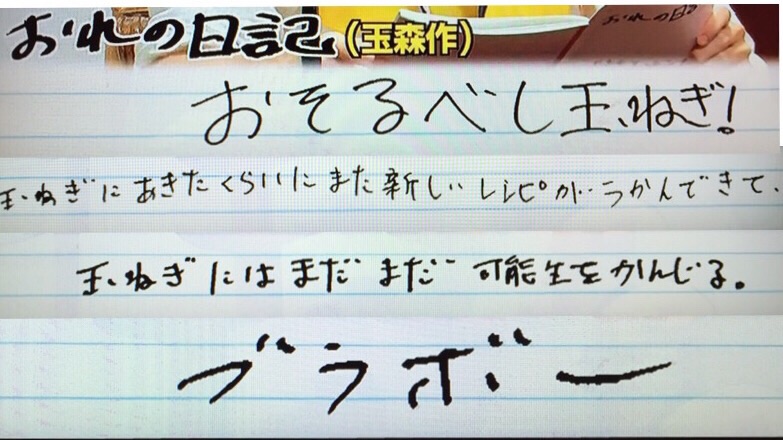 おれの日記(玉森作)
おれの日記
おそるべし玉ねぎ!
玉ねぎにあきたくらいにまた新しいレシピがうかんできて、
玉ねぎにはまだまだ可能生をかんじる。
ブラボー